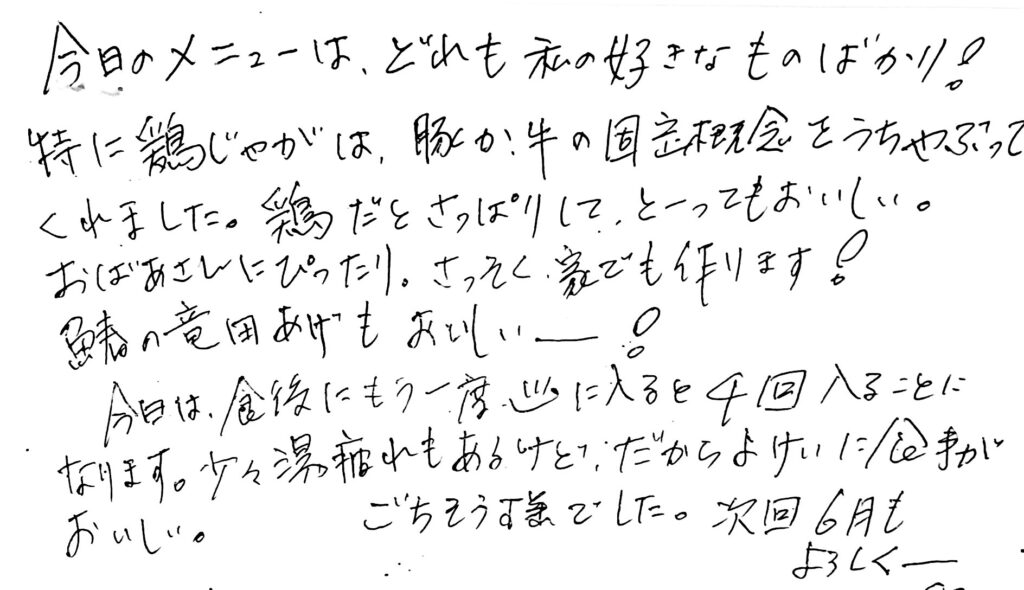 今日のメニューは、どれも私の好きなものばかり!
特に鶏じゃがは、豚か、牛の固定概念をうちやぶって
くれました。鶏だとさっぱりして、とーってもおいしい。
おばあさんにぴったり。さっそく、家でも作ります!
鯖の竜田あげもおいしいー!
今日は、食後にもう一度♨に入ると4回入ることに
なります。少々湯疲れもあるけど、だからよけいに食事が
おいしい。 ごちそう様でした。次回6月も
よろしくー